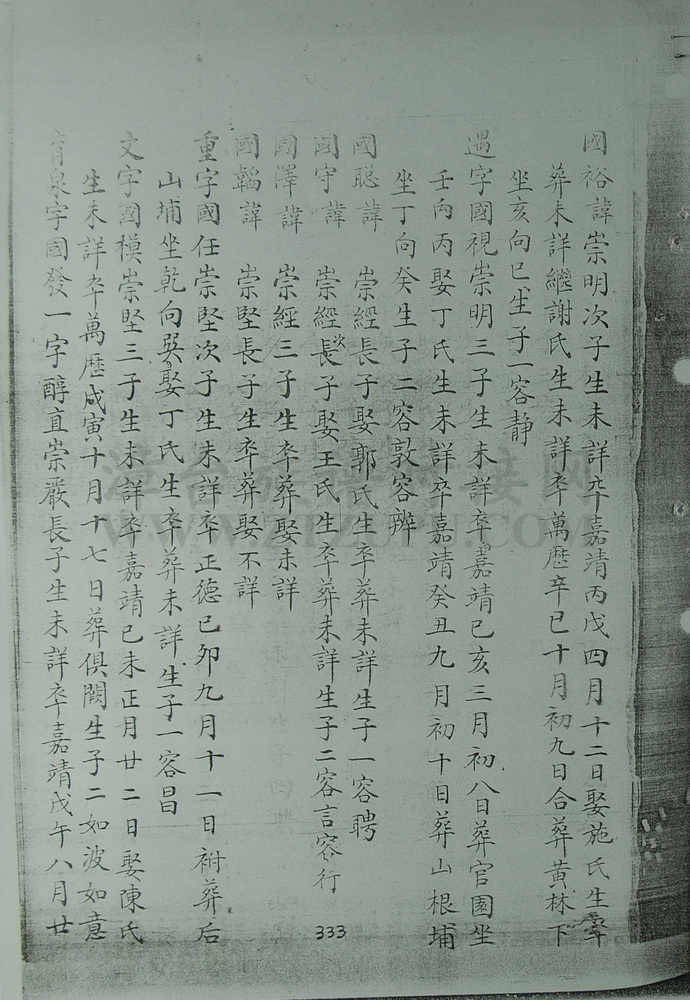 國裕諱崇明次子生未詳卒嘉靖丙戌四月十二日娶施氏生卒
葬未詳繼謝氏生未詳卒萬歷辛巳十月初九日合葬黃林下
坐亥向巳生子一容靜
遇字國視崇明三子生未詳卒嘉靖己亥三月初八日葬官園坐
壬向丙娶丁氏生未詳卒嘉靖癸丑九月初十日葬山根埔
坐丁向癸生子二容敦容辦
國聰諱 崇經長子娶郭氏生卒葬未詳生子一容聘
國守諱 崇經次子娶王氏生卒葬未詳生子二容言容行
國澤諱 崇經三子生卒葬娶未詳
國韜諱 崇堅長子生卒葬娶不詳
重字國任崇堅次子生未詳卒正德己卯九月十一日祔葬后
山埔坐乾向巽娶丁氏生卒葬未詳生子一容昌
文字國模崇堅三子生未詳卒嘉靖己未正月廿二日娶陳氏
生未詳卒萬歷戊寅十月十七日葬俱闕生子二如波如意
泉字國發一字醇直崇嚴長子生未詳卒嘉靖戊午八月廿
333